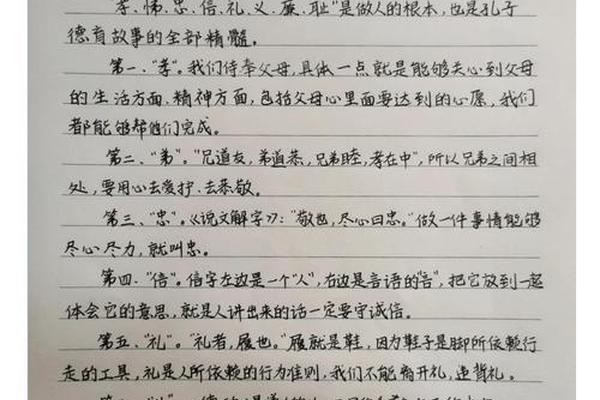 孝、悌、忠、信、礼、义、廉、耻"是做人的根本,也是孔子
德育故事的全部精髓。
第一、"孝"。我们侍奉父母,具体一点就是能够关心到父母
的生活方面、精神方面,包括父母心里面要达到的心愿,我们
都能够帮他们完成。
第二、"弟"。"兄道友,弟道恭,兄弟睦,孝在中",所以兄弟之间相
处,要用心去爱护、去恭敬。
第三、"忠"。《说文解字》:"敬也,尽心曰忠。"做一件事情能够
尽心尽力,就叫忠。
第四、"信"。信字左边是一个"人",右边是言语的"言",把它放到一起
体会它的意思,就是人讲出来的话一定要守诚信。
第五、"礼"。"礼者,履也。"履就是鞋,因为鞋子是脚所依赖行
走的工具,礼是人所依赖的行为准则,我们不能离开礼,违背礼。